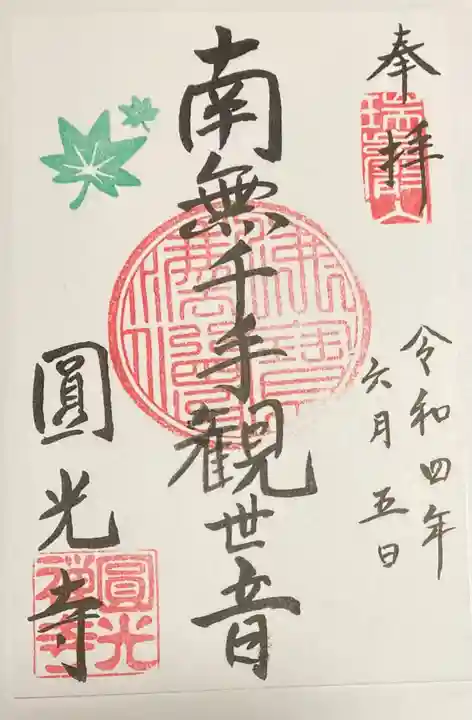 奉拝
令和四年
六月五日
南無千手観世音
圓光寺
圓光